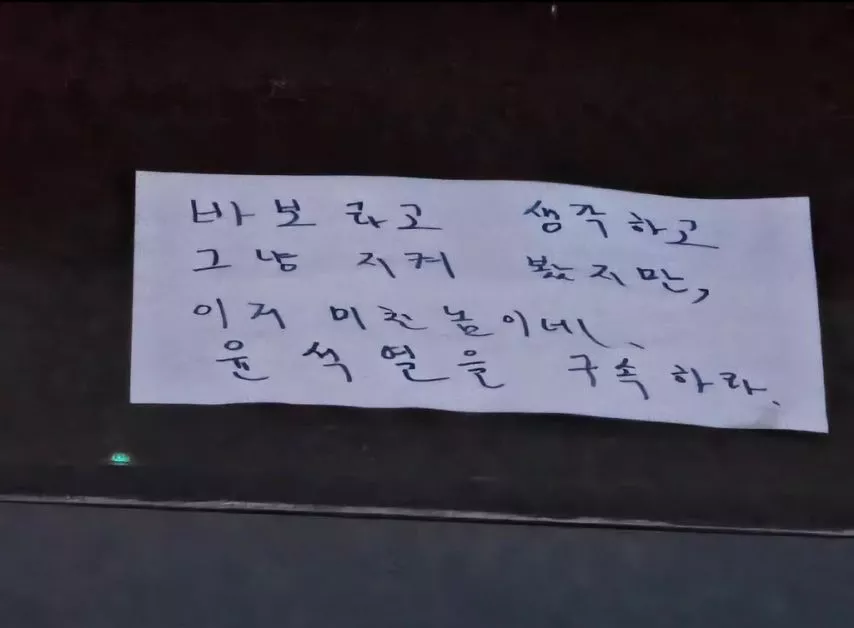 바보라고 생각하고
그냥 지켜 봤지만,
이저 미친놈이네.
윤석열을 구속하라.